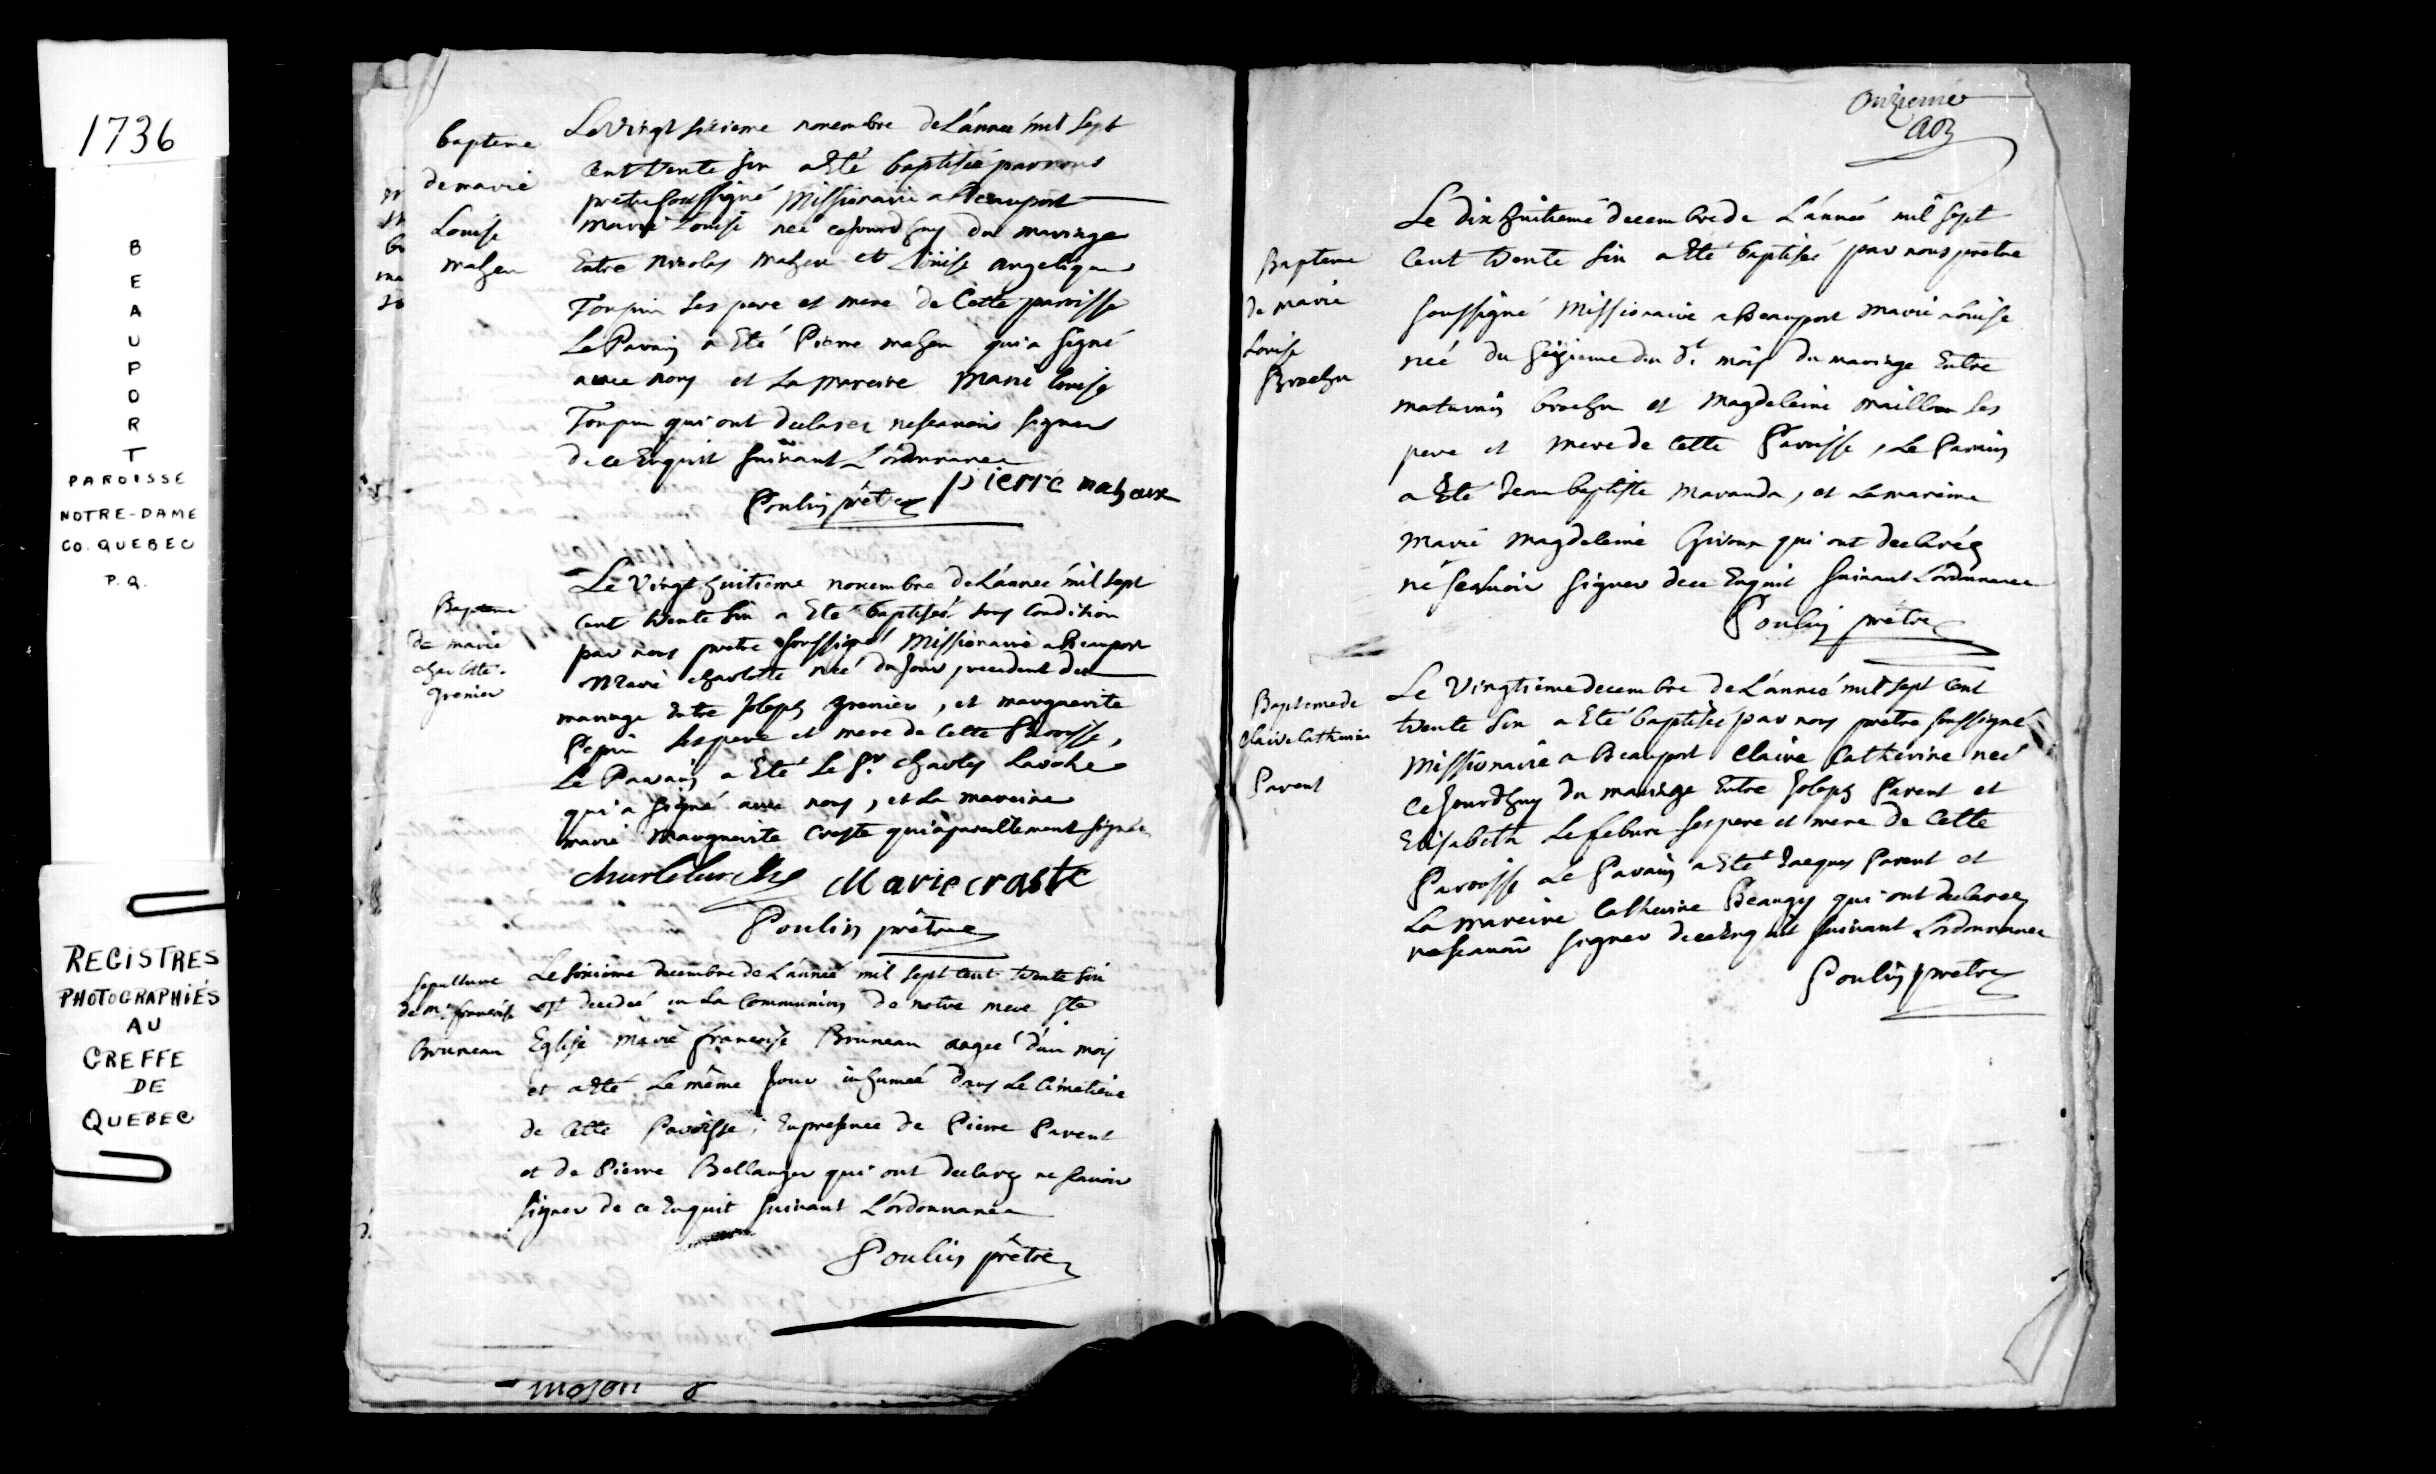 1736
BEAUPORT
PAROISSE
NOTRE-DAME
CO. QUEBEC
P.Q.
REGISTRES
PHOTOGRAPHIÉS
AU
GREFFE
DE
QUEBEC
bapteme
de marie
Louise
mahеu
Le vingt sixieme novembre de L'année mil sept
cent trente six a Eté baptisée par nous
pretre soussigné Missionaire a Beauport
marie Louise neé cejourd'huy du mariage
Entre Nicolas maheu et Louise angelique
Toupin ses pere et mere de Cette paroisse
Le Parain a Eté Pierre maheu qui a signé
avec nous et La mareine Marie louise
Toupin qui ont declarer ne scavoir signer
de ce Enquis suivant L'ordonnance
Poulin prêtre pierre maheux
Bapteme
de marie
charlotte
grenier
Le Vingt huitieme novembre de L'année mil sept
cent trente six a Eté baptiseé sous Condition
par nous pretre soussigné Missionaire a Beauport
Marie charlotte neé du Jour precedent du
mariage Entre Joseph grenier, et marguerite
Pepin ses pere et mere de Cette Paroisse,
Le Parain a Eté Le Sr. charles Laroche
qui a signé avec nous, et La mareine
marie Marguerite Creste qui a pareillement signée
Marie craste
Poulin prêtre
sepulture
de Me francoise
Bruneau
Le sixieme decembre de L'anneé mil sept cent trente six
est decedeé en La Communion de notre mere Ste
Eglise Marie francoise Bruneau ageé d'un mois
et a Eté Le même Jour inhumeé dans Le Cimetiere
de Cette Paroisse, En presence de Pierre Parent
et de Pierre Bellanger qui ont declarez ne scavoir
signer de ce Enquit suivant L'ordonnance
Poulin prêtre
Onzieme
Bapteme
de marie
Louise
Brochu
Le dix huitieme decembre de L'anneé mil sept
Cent trente six a Eté baptisée par nous pretre
soussigné Missionaire a Beauport Marie Louise
neé du seizieme du dt. mois du mariage Entre
maturin brochu et Magdeleine mailloux ses
pere et mere de Cette Paroisse, Le Parain
a Eté Jean baptiste Maranda, et La mareine
Marie Magdeleine Giroux qui ont declarés
ne scavoir signer de ce Enquit suivant L'ordonnance
Poulin prêtre
Bapteme de
Claire Catherine
Parent
Le Vingtieme decembre de L'anneé mil sept Cent
trente six a Eté baptisée par nous prêtre soussigné
Missionaire a Beauport Claire Catherine neé
Cejourd'huy du mariage Entre Joseph Parent et
Elisabeth Lefebvre ses pere et mere de Cette
Paroisse Le Parain a Eté Jacques Parent et
La mareine Catherine Beaugy qui ont declarez
ne scavoir signer de ce Enquit suivant L'ordonnance
Poulin prêtre